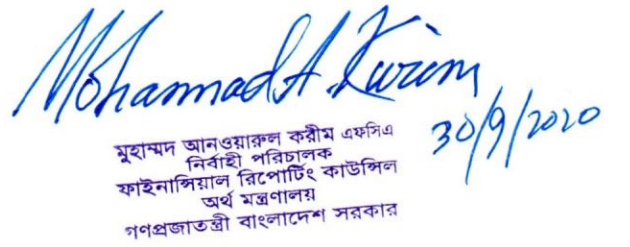 Mohammad A. Karim
30/9/2020
মুহাম্মদ আনওয়ারুল করীম এফসিএ
নির্বাহী পরিচালক
ফাইনান্সিয়াল রিপোর্টিং কাউন্সিল
অর্থ মন্ত্রণালয়
গণপ্রজাতন্ত্রী বাংলাদেশ সরকার